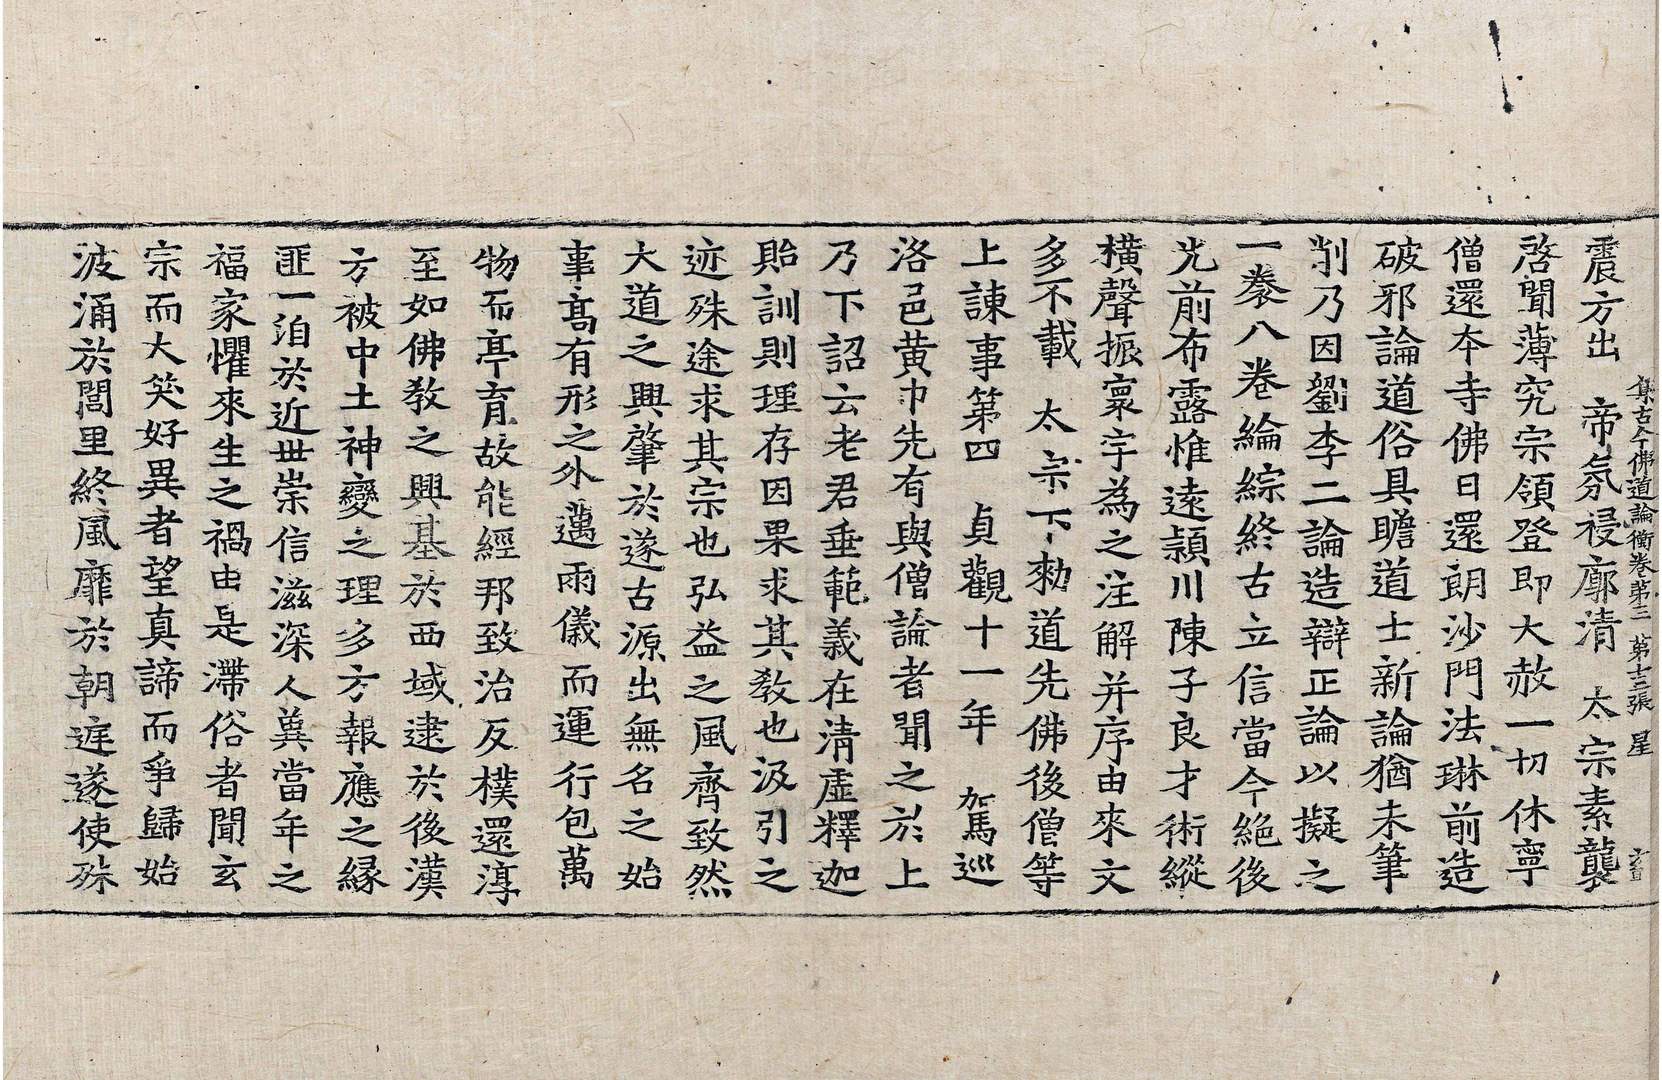 震方出　帝氛祲廓清　太宗素襲
集古今佛道論衡卷第三　第十三張　星
啓聞薄究宗領登即大赦一切休寧
僧還本寺佛日還朗沙門法琳前造
破邪論道俗具瞻道士新論猶未筆
削乃因劉李二論造辯正論以擬之
一袠八卷綸綜終古立信當今絶後
光前布露惟遠潁川陳子良才術縱
橫聲振寰宇為之注解并序由來文
多不載　太宗下勑道先佛後僧等
上諫事第四　貞觀十一年　駕巡
洛邑黄巾先有與僧論者聞之於上
乃下詔云老君垂範義在清虛釋迦
貽訓則理存因果求其教也汲引之
迹殊途求其宗也弘益之風齊致然
大道之興肇於遂古源出無名之始
事高有形之外邁兩儀而運行包萬
物而亭育故能經邦致治反樸還淳
至如佛教之興基於西域逮於後漢
方被中土神變之理多方報應之縁
匪一洎於近世崇信滋深人冀當年之
福家懼來生之禍由是滯俗者聞玄
宗而大笑好異者望真諦而爭歸始
波涌於閭里終風靡於朝廷遂使殊